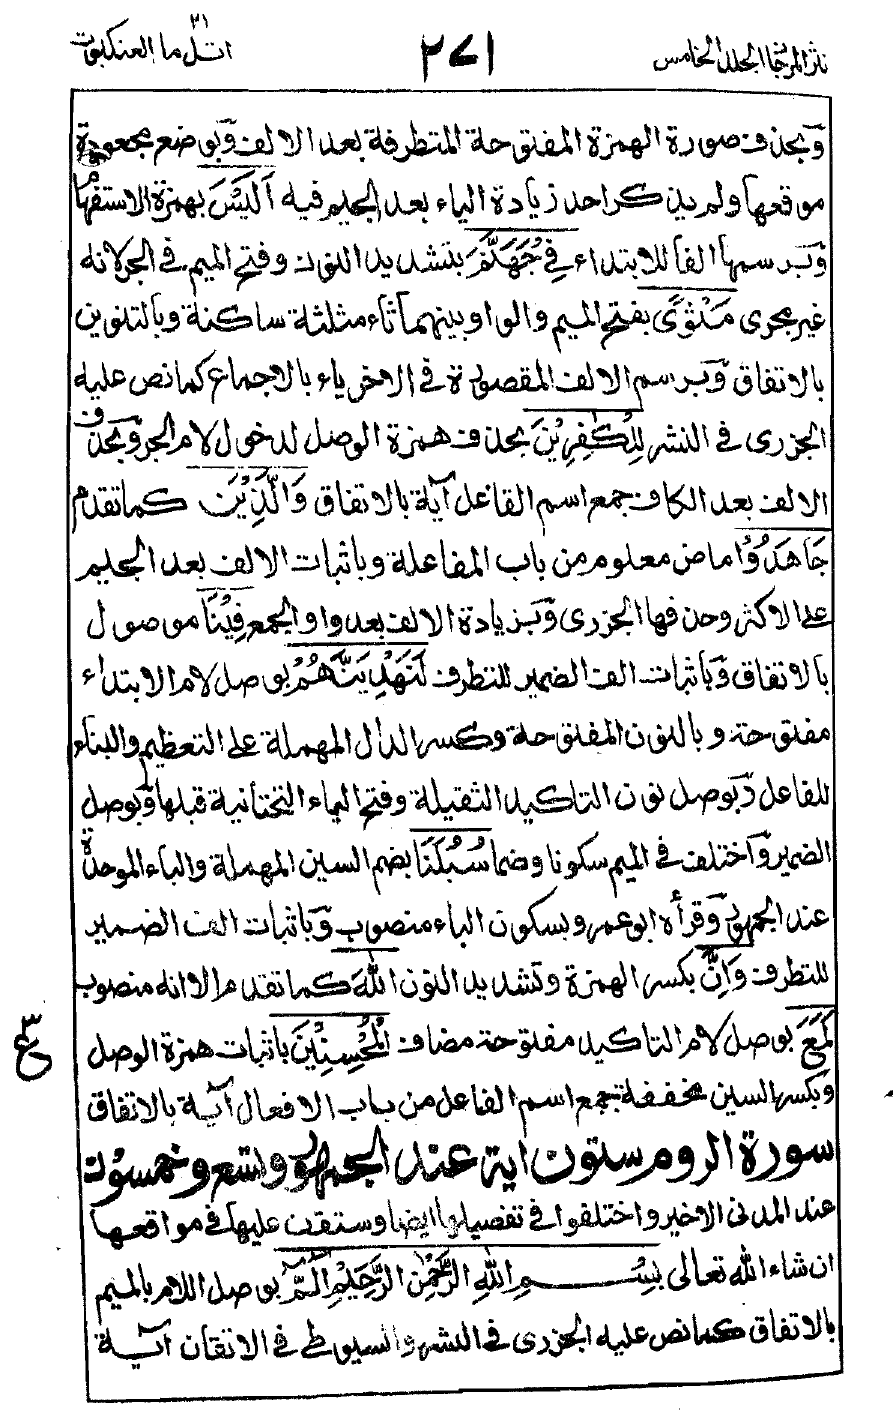 نثر المرجان المجلد الخامس ٢٧١ اتل ما ٢١ العنكبوت
وبحذف صورة الهمزة المفتوحة المتطرفة بعد الالف وبوضع مجعودة
موقعها ولم يذكر احد زيادة الياء بعد الجيم فيه اَلَيْسَ بهمزة الاستفهام
وبرسمها الفا للابتداء فِي جَهَنَّمَ بتشديد النون وفتح الميم في الجر لانه
غير مجرى مَثْوًى بفتح الميم والواو بينهما ثاء مثلثة ساكنة وبالتنوين
بالاتفاق وبرسم الالف المقصورة في الاخر ياء بالاجماع كما نص عليه
الجزرى في النشر لِلْكٰفِرِيْنَ بحذف همزة الوصل لدخول لام الجر وبحذف
الالف بعد الكاف جمع اسم الفاعل آية بالاتفاق وَالَّذِيْنَ كما تقدم
جَاهَدُوْا ماض معلوم من باب المفاعلة وباثبات الالف بعد الجيم
على الاكثر وحذفها الجزرى وبزيادة الالف بعد واو الجمع فِيْنَا موصول
بالاتفاق وباثبات الف الضمير للتطرف لَنَهْدِيَنَّهُمْ بوصل لام الابتداء
مفتوحة وبالنون المفتوحة وكسر الدال المهملة على التعظيم والبناء
للفاعل وبوصل نون التاكيد الثقيلة وفتح الياء التحتانية قبلها وبوصل
الضمير واختلف في الميم سكونا وضما سُبُلَنَا بضم السين المهملة والباء الموحدة
عند الجمهور وقرأه ابو عمرو بسكون الباء منصوب وباثبات الف الضمير
للتطرف وَاِنَّ بكسر الهمزة وتشديد النون اللّٰهَ كما تقدم الا انه منصوب
لَمَعَ بوصل لام التاكيد مفتوحة مضاف الْمُحْسِنِيْنَ باثبات همزة الوصل
وبكسر السين مخففة جمع اسم الفاعل من باب الافعال آية بالاتفاق
سورة الروم ستون اية عند الجمهور وتسع وخمسون
عند المدنى الاخير واختلفوا في تفصيلها ايضا وستقف عليها في مواقعها
ان شاء الله تعالى بِسْمِ اللّٰهِ الرَّحْمٰنِ الرَّحِيْمِ الٓمّٓ بوصل اللام بالميم
بالاتفاق كما نص عليه الجزرى في النشر والسيوطى في الاتقان آية
٣
ع